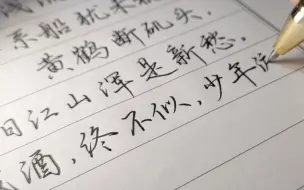 系船犹未稳
黄鹤断矶头,
旧江山浑是新愁。
酒,终不似,少年